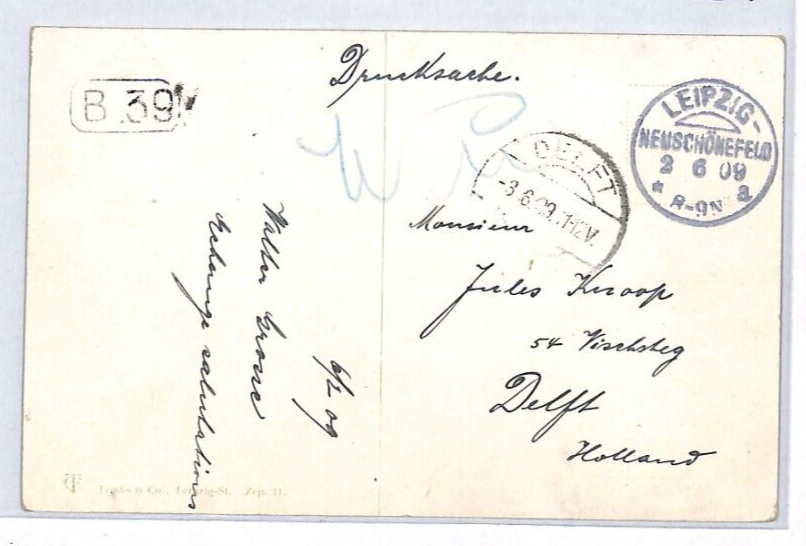 Drucksache.
B.39
LEIPZIG-
NEUSCHÖNEFELD
2 6 09
* 8-9N a
DELFT
-3.6.09.11-12V.
Monsieur
Jules Knoop
54 Vischsteg
Delft
Holland
6/2 09
Walter Grosse
Echange salutations
& Co., Leipzig-St. Zep. 11.